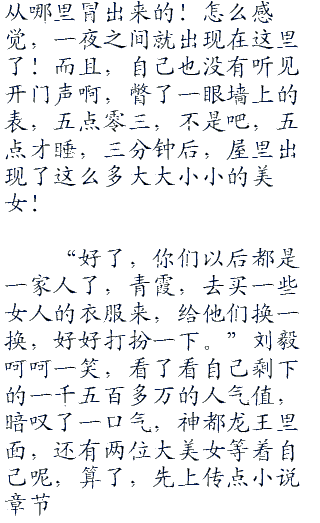 从哪里冒出来的！怎么感
觉，一夜之间就出现在这里
了！而且，自己也没有听见
开门声啊，瞥了一眼墙上的
表，五点零三，不是吧，五
点才睡，三分钟后，屋里出
现了这么多大大小小的美
女！
“好了，你们以后都是
一家人了，青霞，去买一些
女人的衣服来，给他们换一
换，好好打扮一下。”刘毅
呵呵一笑，看了看自己剩下
的一千五百多万的人气值，
暗叹了一口气，神都龙王里
面，还有两位大美女等着自
己呢，算了，先上传点小说
章节